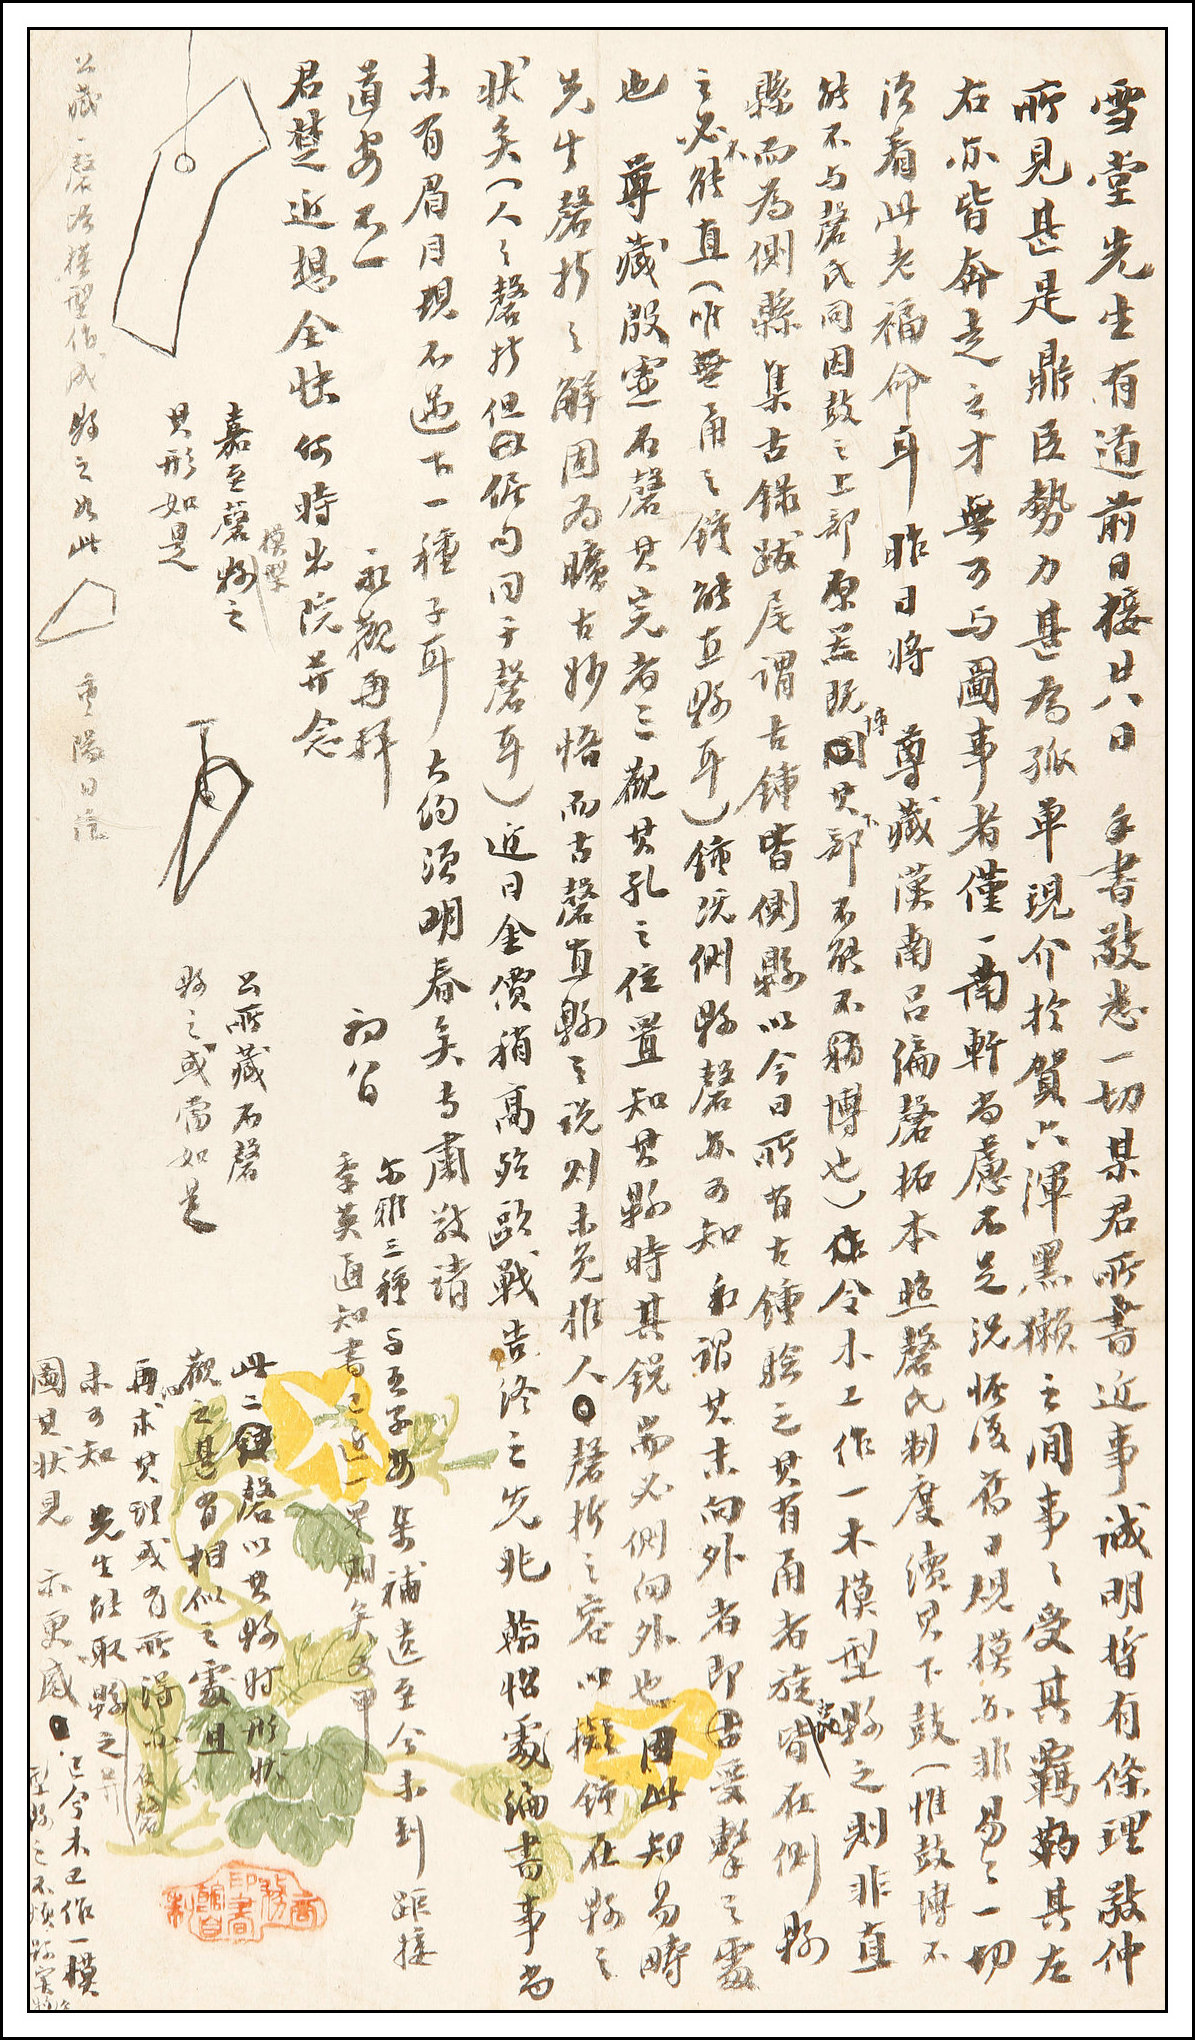 雪堂先生有道前日接廿八日　手書敬悉一切某君所書近事誠明晳有條理敬仲
所見甚是鼎臣勢力甚為孤單現介於賀六渾黑獺之間事之受其羈勒其左
右亦皆奔走之才無可与圖事者僅一南軒尚慮不足況恢復舊日規模亦非易之一切
須看此老福命耳昨日將　尊藏漢南呂編磬拓本照磬氏制度續其下鼓（惟鼓博不
能不与磬氏同因鼓之上部原器既博其下部不能不博也）令木工作一木模型縣之則非直
縣而為側縣集古錄跋尾謂古鍾皆側縣以今日所有古鍾驗之其有甬者旋皆在側縣
之必不能直（唯無甬之鍾能直縣耳）鍾既側縣磬亦可知　謂其末向外者即受擊之處
也　尊藏殷虛石磬其完者三觀其孔之位置知其縣時其銳耑必側向外也因此知易疇
先生磬折之解固為曠古妙悟而古磬直縣之說則未免推人磬折之容以擬鍾在縣之
狀矣（人之磬折但倨句同于磬耳）近日金價稍高殆歐戰告終之先兆翰怡處編書事尚
未有眉目現不過下一種子耳大約須明春矣専肅敬請
道安不一　　永觀再拜　初八日
君楚近想全快何時出院并念
爾雅三種与五子安集補遺至今未到距接
季英通知書已近一星期矣又申
嘉至磬模型縣之
其形如是
公所藏石磬
縣之或當如是
此二磬以其縣時形狀
觀之甚有相似之處且
再求其理或有所得亦
未可知　先生能取縣之并
圖其狀見　示更感
已令木工作一模
公藏一磬須模型作成縣之如此　重陽日注
商務印書館自製